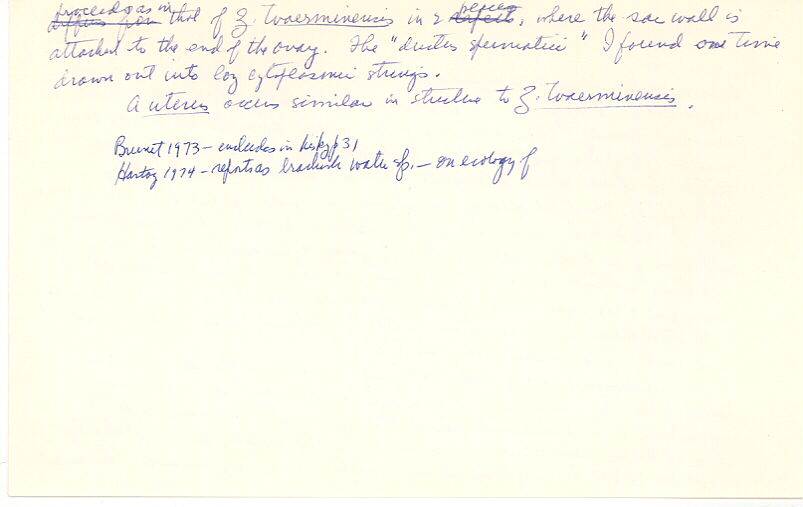 proceeds as in
~~differs from~~ that of Z. Tvaerminensis in 2 ~~defects~~, where the sac wall is
attached to the end of the ovary. The "ductus spermatici" I found one time
drawn out into long cytoplasmic strings.
A uterus occurs similar in structure to Z. Tvaerminensis.
Brunet 1973 - includes in his key p 31
Hartog 1974 - reports as brackish water sp. - on ecology of